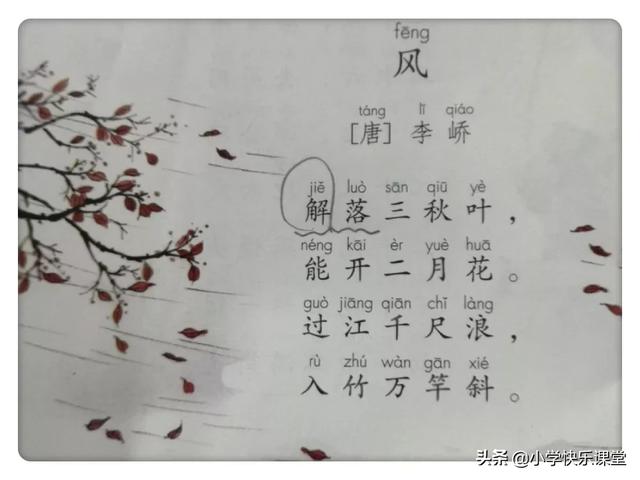 fēng
风
táng lǐ qiáo
[唐] 李 峤
jiě luò sān qiū yè
解落三秋叶，
néng kāi èr yuè huā
能开二月花。
guò jiāng qiān chǐ làng
过江千尺浪，
rù zhú wàn gān xié
入竹万竿斜。
头条 @小学快乐课堂